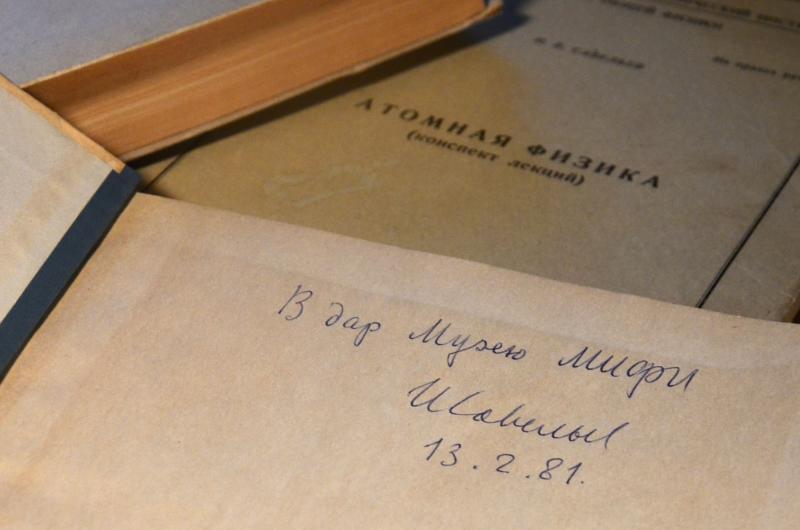 И. В. САВЕЛЬЕВ
АТОМНАЯ ФИЗИКА
(конспект лекций)
В дар Музею МИФИ
ИСавельев
13.2.81.